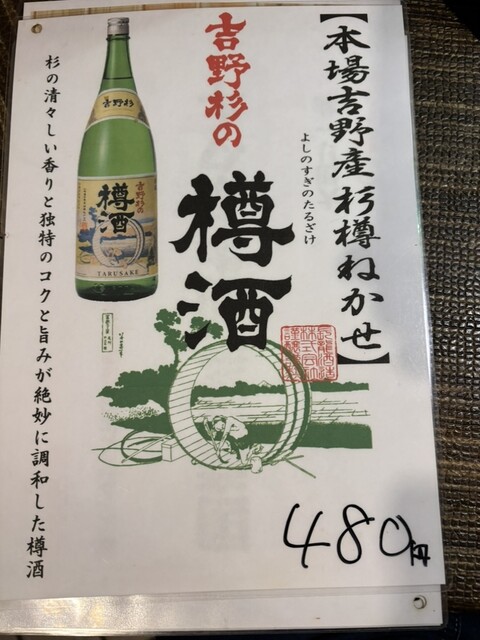 【本場吉野産杉樽ねかせ】
よしのすぎのたるざけ
吉野杉の
樽酒
吉野杉
吉野杉の
樽酒
TARUSAKE
杉の清々しい香りと独特のコクと旨みが絶妙に調和した樽酒
480円